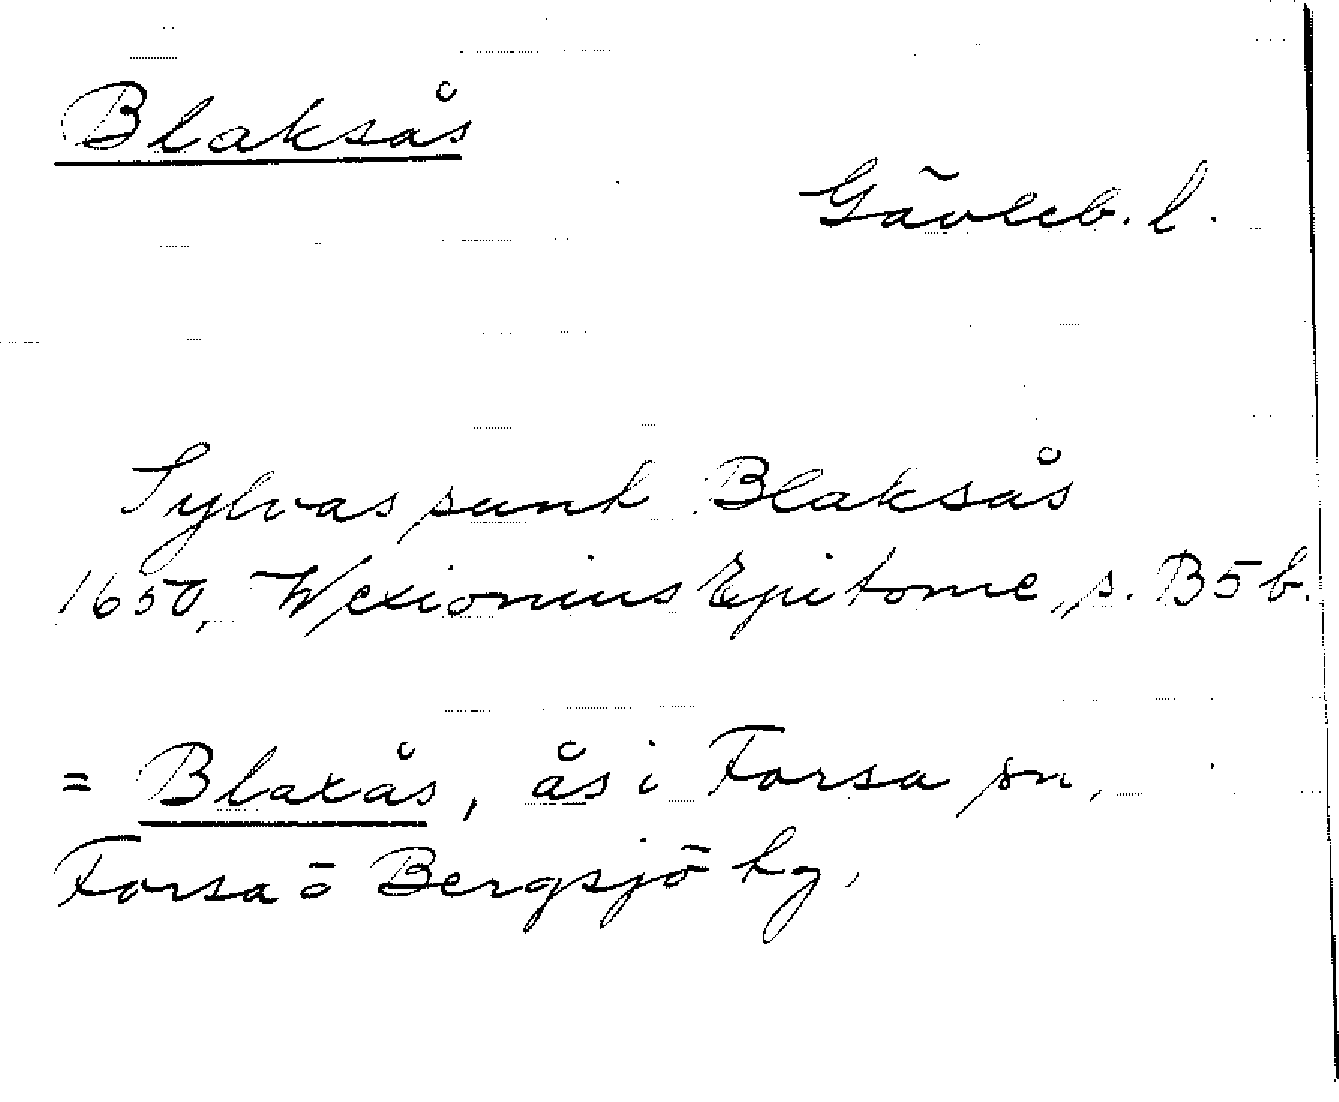 Blaksås
Gävleb. l.
Sylvas sunt Blaksås
1650, Wexionius Epitome, s. B5b.
= Blaxås, ås i Forsa sn,
Forsa o Bergsjö hg.